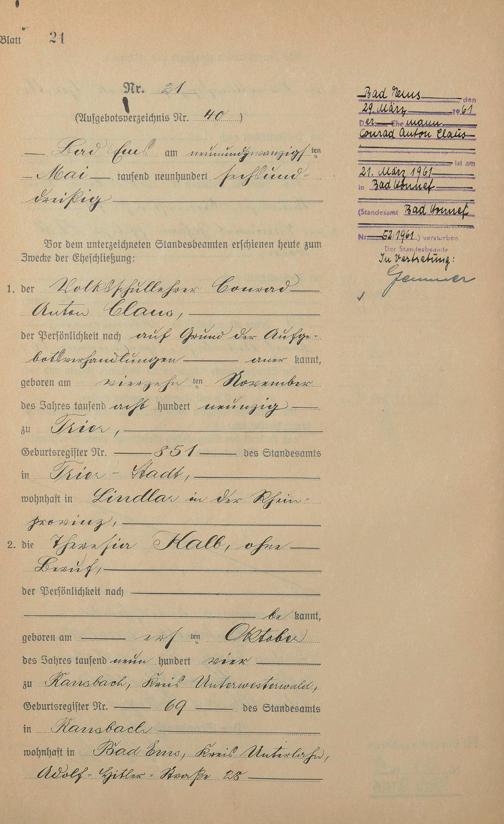 Blatt 21
Nr. 21
(Aufgebotsverzeichnis Nr. 40)
Bad Ems am neunundzwanzigsten
Mai tausend neunhundert sechsund-
dreißig
Vor dem unterzeichneten Standesbeamten erschienen heute zum
Zwecke der Eheschließung:
1. der Volksschullehrer Conrad
Anton Claus,
der Persönlichkeit nach auf Grund der Aufge-
botsverhandlungen anerkannt,
geboren am vierzehnten November
des Jahres tausend acht hundert neunzig
zu Trier,
Geburtsregister Nr. 851 des Standesamts
in Trier-Stadt,
wohnhaft in Lindlar in der Rhein-
provinz,
2. die Theresia Halb, ohne
Beruf,
der Persönlichkeit nach
bekannt,
geboren am ten Oktober
des Jahres tausend neun hundert vier
zu Ransbach, Kreis Unterwesterwald,
Geburtsregister Nr. 69 des Standesamts
in Ransbach
wohnhaft in Bad Ems, Kreis Unterlahn,
Adolf-Hitler-Straße 28
Bad Ems den
29. März 1961
Der Ehemann
Conrad Anton Claus
ist am
21. März 1961
in Bad Honnef
(Standesamt Bad Honnef
Nr. 52/1961) verstorben
Der Standesbeamte
In Vertretung: